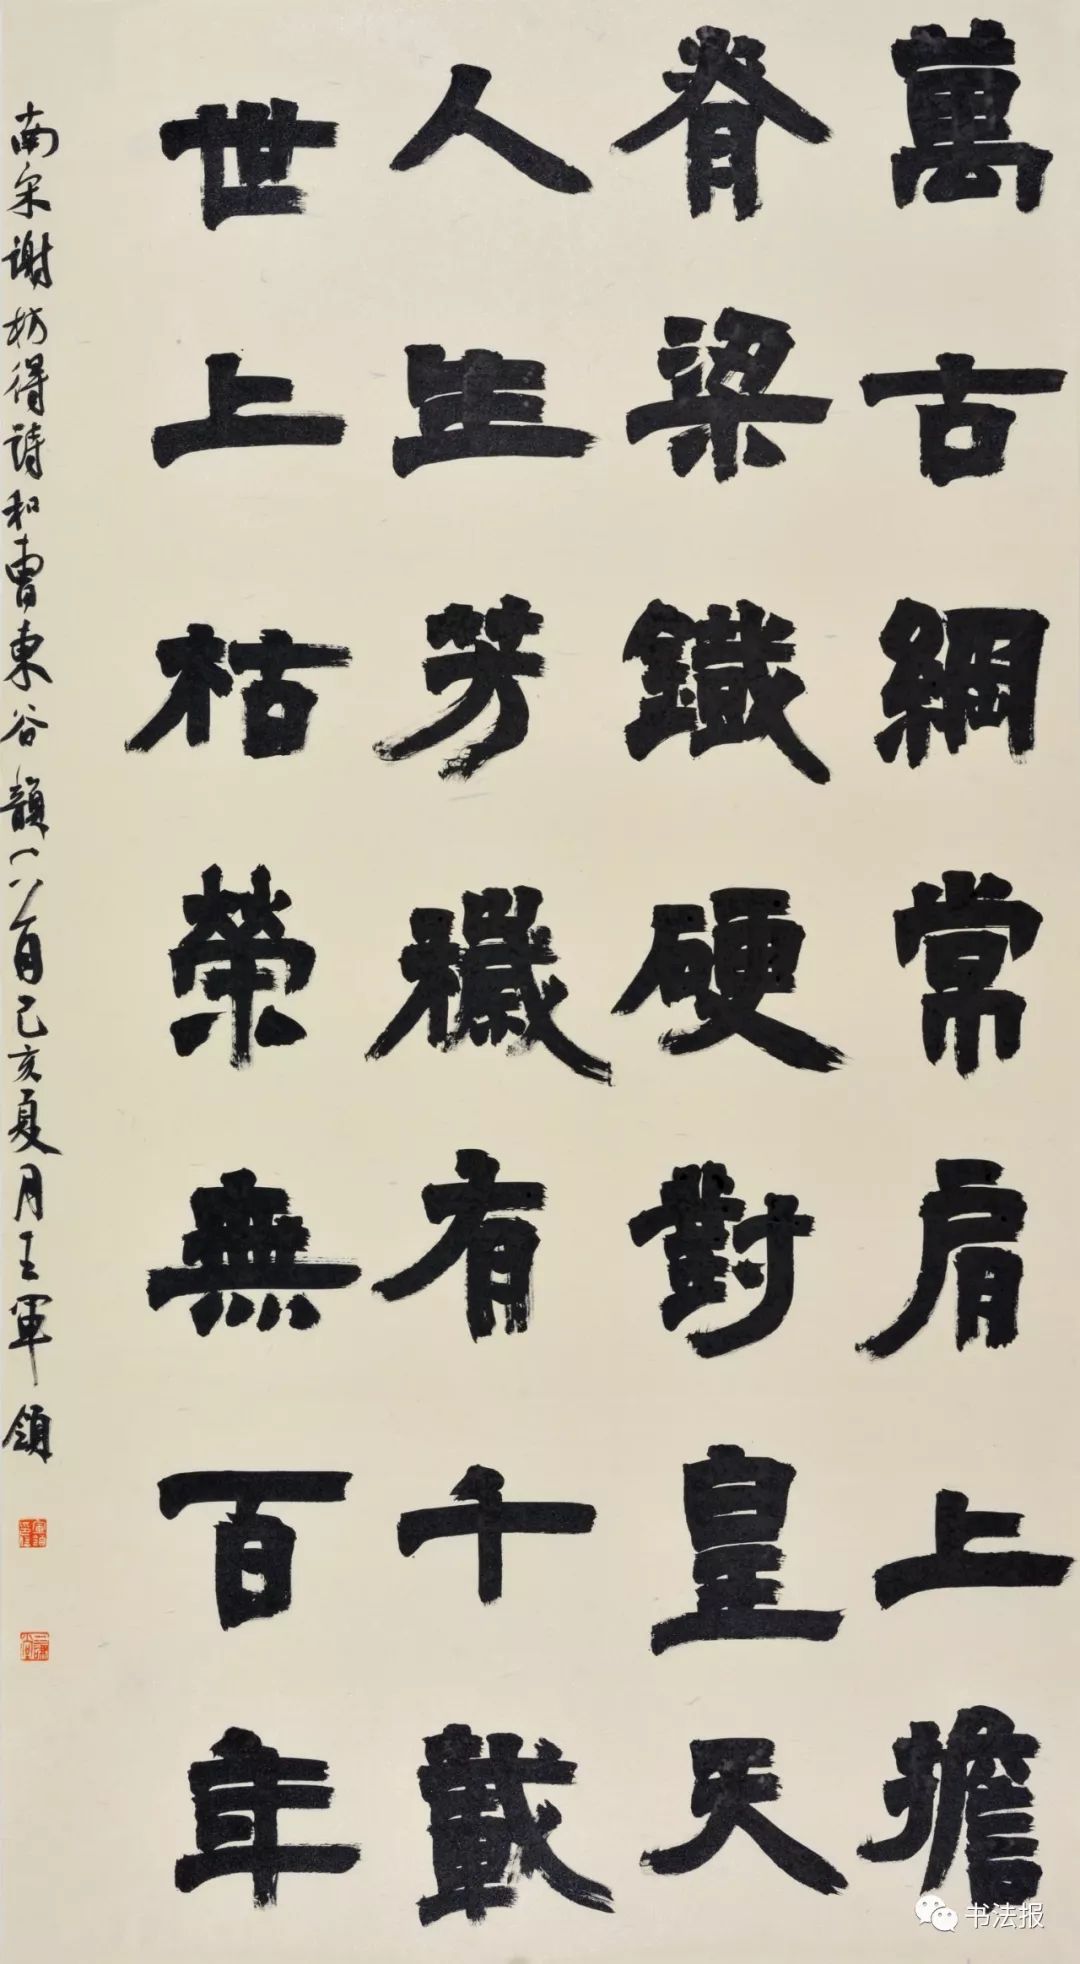 萬古綱常肩上擔
脊梁鐵硬對皇天
人生芳穢有千載
世上枯榮無百年
南宋謝枋得詩和曹東谷韻一首己亥夏月王軍領
书法报